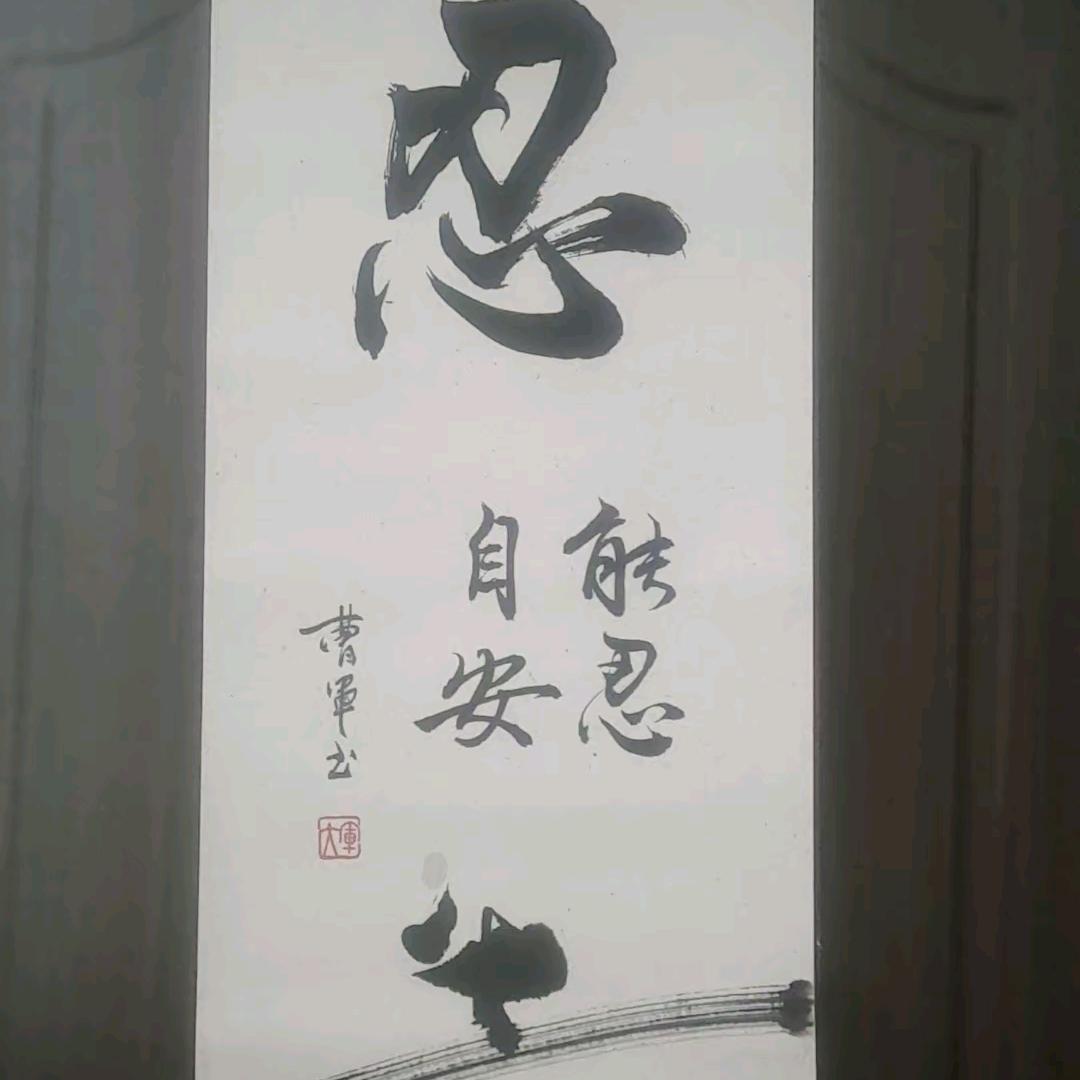 忍
能忍
自安
曹軍书
軍大